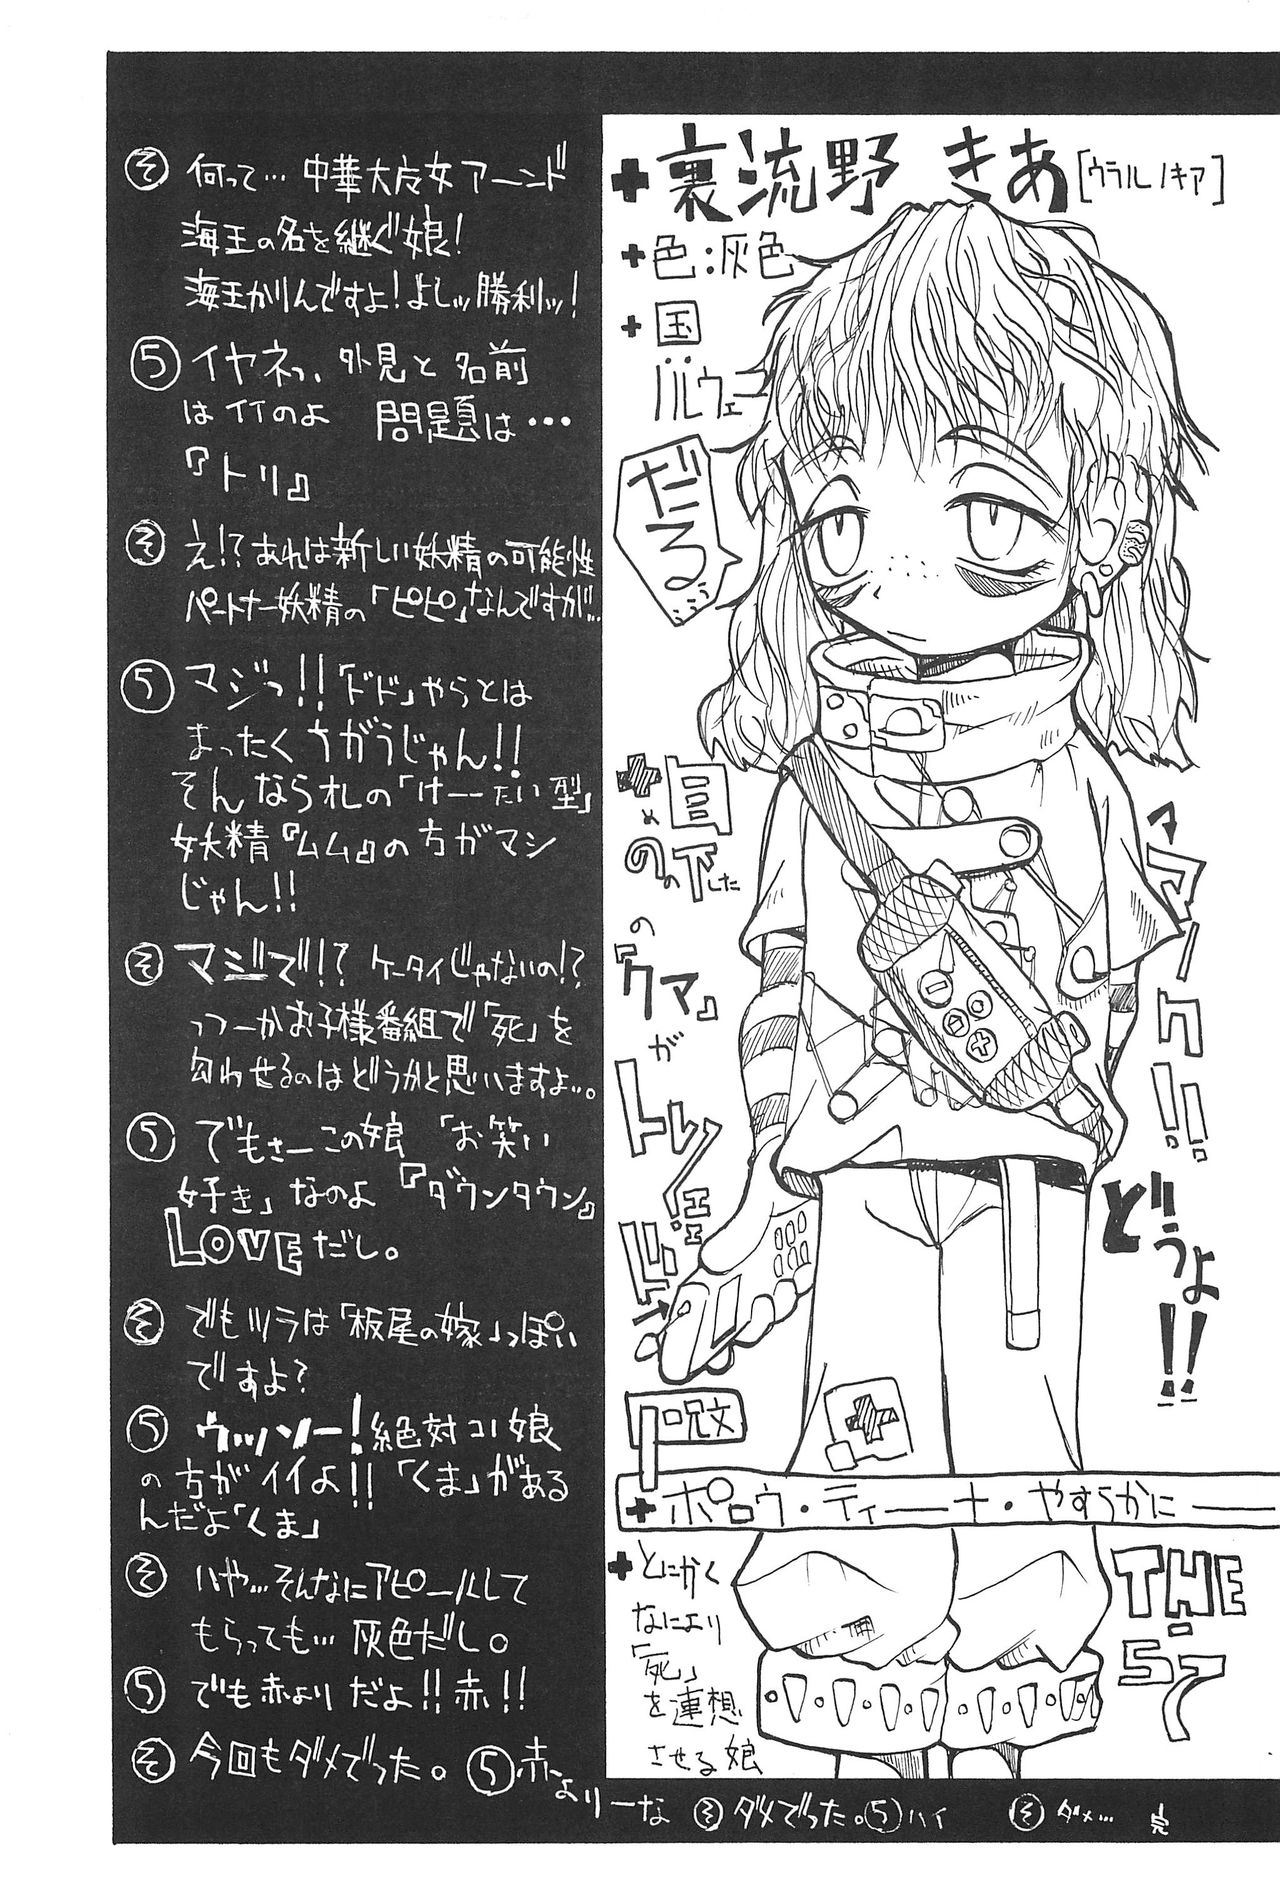 そ 何って…中華大好女アーンド
海王の名を継ぐ娘!
海王かりんですよ!よしッ勝利ッ!
5 イヤネっ、外見と名前
はイイのよ 問題は…
『トリ』
そ え!?あれは新しい妖精の可能性
パートナー妖精の「ピピ」なんですが…
5 マジっ!!「ドド」やらとは
まったくちがうじゃん!!
そんなられの「けーたい型」
妖精『ムム』の方がマシ
じゃん!!
そ マジで!?ケータイじゃないの!?
っつーかお子様番組で「死」を
匂わせるのはどうかと思いますよ…。
5 でもさーこの娘「お笑い
好き」なのよ『ダウンタウン』
LOVEだし。
そ でもツラは「板尾の嫁」っぽい
ですよ?
5 ウッソー!絶対コノ娘
の方がイイよ!!「くま」がある
んだよ「くま」
そ いや…そんなにアピールして
もらっても…灰色だし。
5 でも赤よりだよ!!赤!!
そ 今回もダメでった。 5 赤よりーな
そ ダメでった。 5 ハイ そ ダメ… 完
裏流野 きあ [ウラルノキア]
色:灰色
国:ノルウェー
だるぅぅ…
目の下の『クマ』がトレンド
め の した
マアーク!!どうよ!!
呪文
ポロウ・ティーナ・やすらかにー
とにかく
なにより
「死」
を連想
させる娘
THE
57